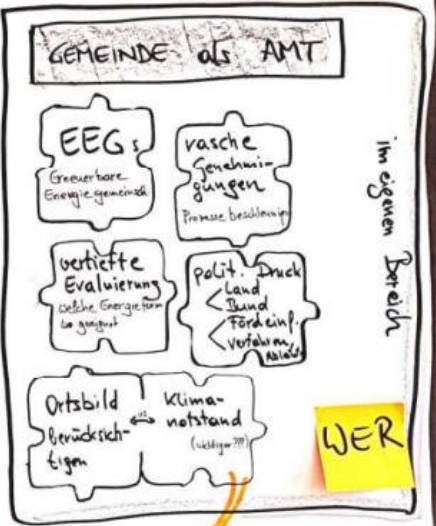 GEMEINDE als AMT
EEGs
Erneuerbare
Energiegemeinsch
rasche
Genehmi-
gungen
Prozesse beschleunigen
vertiefte
Evaluierung
welche Energieform
wo geeignet
polit. Druck
Land
Bund
Verfahren,
Ortsbild
berücksich-
tigen
Klima-
notstand
(wichtiger???)
im eigenen Bereich
WER